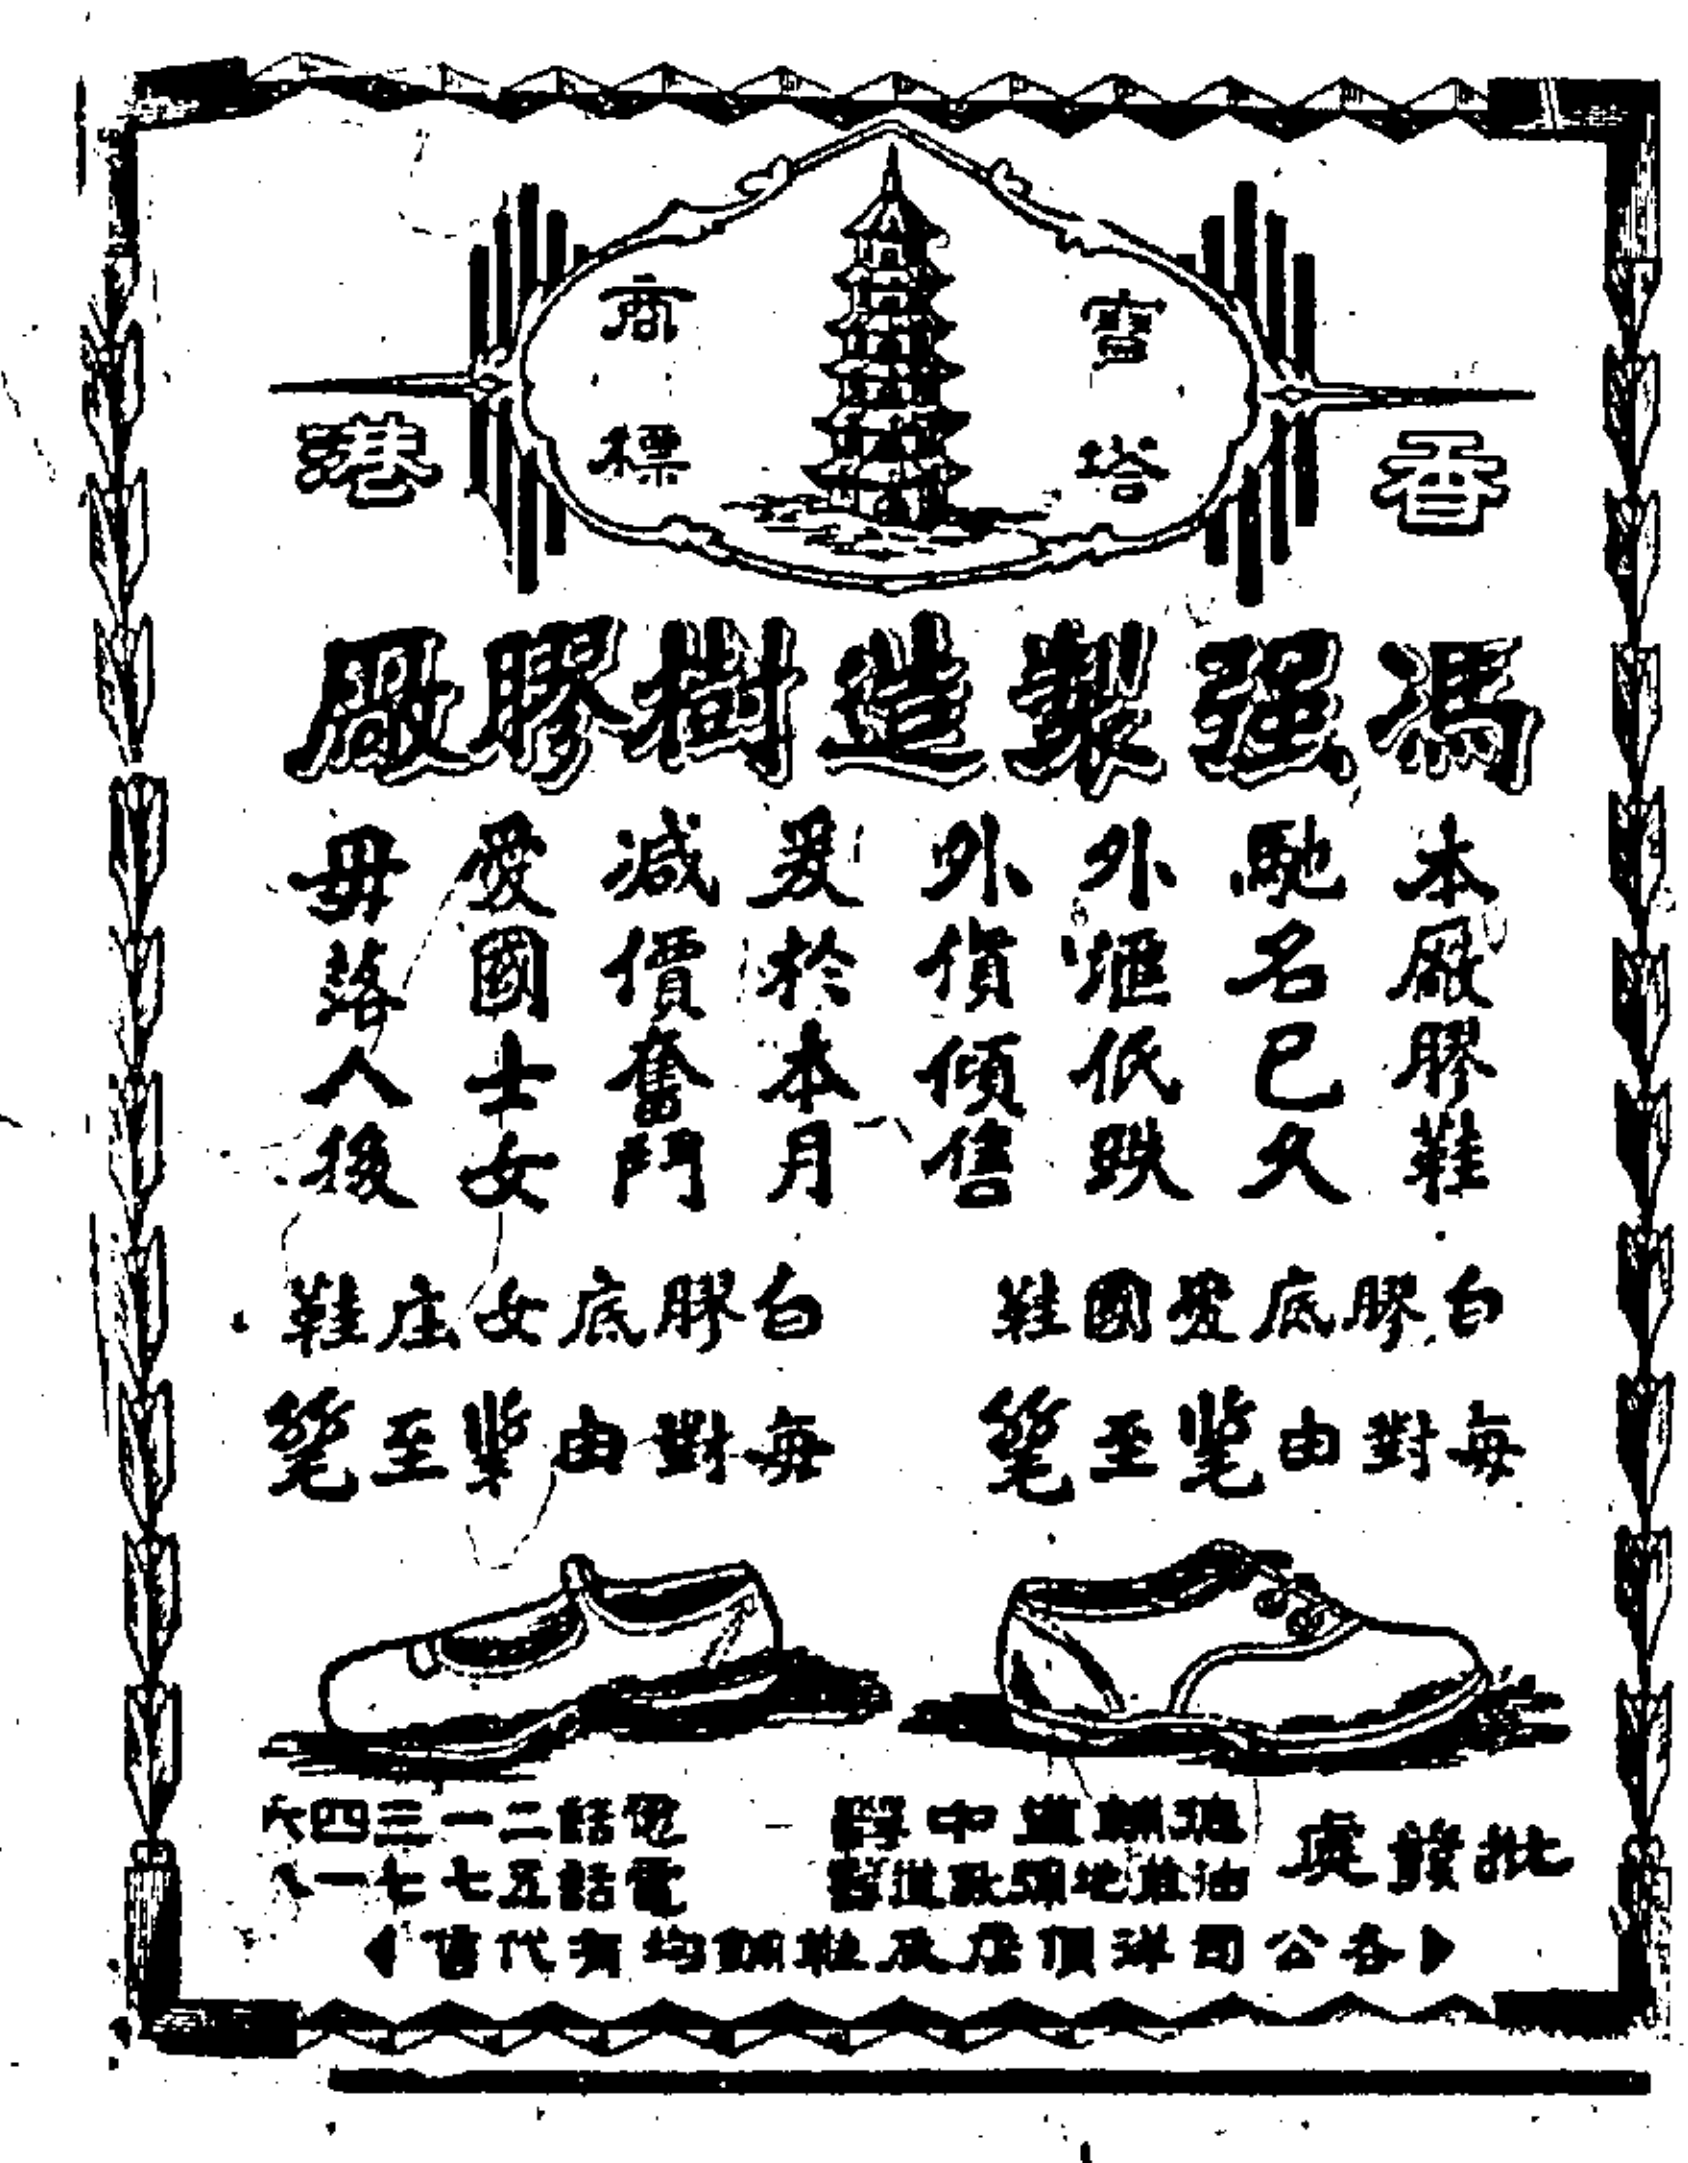 香港
寶塔
商標
馮强製造樹膠廠
本廠膠鞋
馳名已久
外滙低跌
外貨傾售
爰於本月
減價奮鬥
愛國士女
毋落人後
白膠底愛國鞋
每對由至
白膠底女庄鞋
每對由至
批發處
道中
油蔴地彌敦道
電話二一三四六
電話五七七一八
各公司洋頂店及鞋舖均有代售